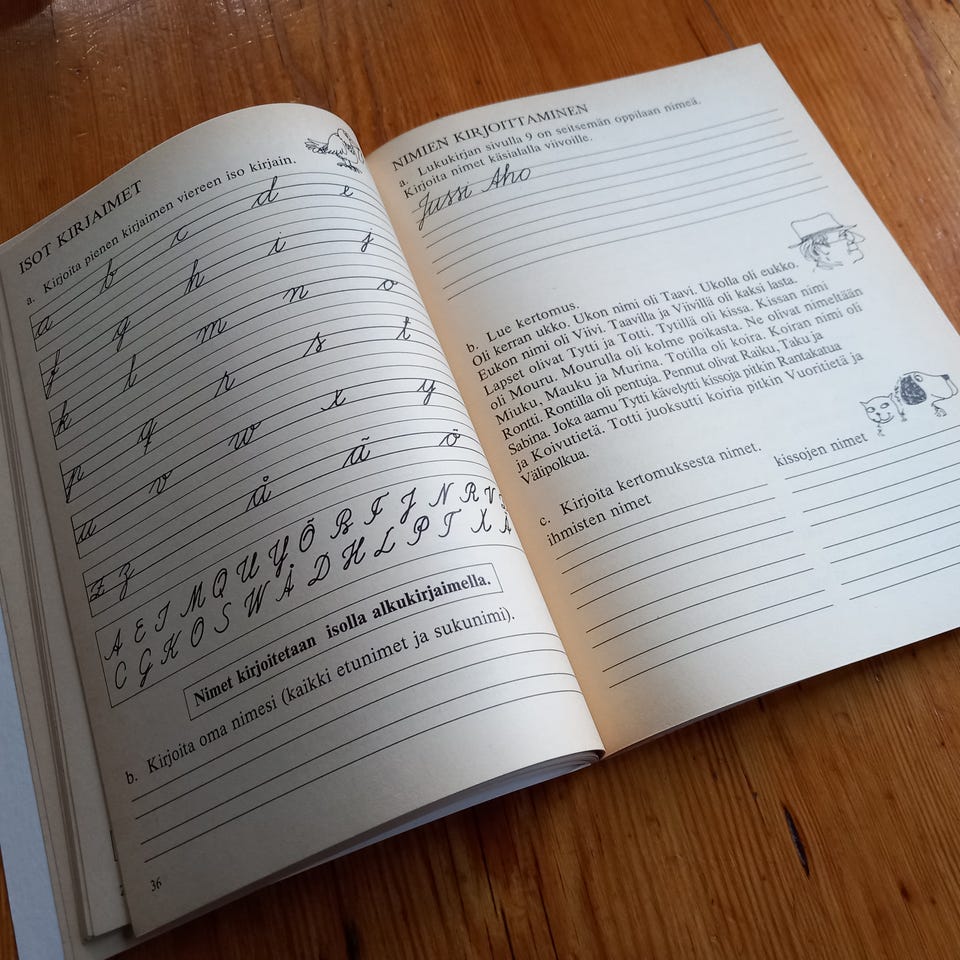 ISOT KIRJAIMET
a. Kirjoita pienen kirjaimen viereen iso kirjain.
a b c d e
f g h i j
k l m n o
p q r s t
u v w x y
z ʒ å ä ö
A E I M Q U Y Ö B F J N R V
C G K O S W Å D H L P T X Ä
Nimet kirjoitetaan isolla alkukirjaimella.
b. Kirjoita oma nimesi (kaikki etunimet ja sukunimi).
36
NIMIEN KIRJOITTAMINEN
a. Lukukirjan sivulla 9 on seitsemän oppilaan nimeä.
Kirjoita nimet käsialalla viivoille.
Jussi Aho
b. Lue kertomus.
Oli kerran ukko. Ukon nimi oli Taavi. Ukolla oli eukko.
Eukon nimi oli Viivi. Taavilla ja Viivillä oli kaksi lasta.
Lapset olivat Tytti ja Totti. Tytillä oli kissa. Kissan nimi
oli Mouru. Mourulla oli kolme poikasta. Ne olivat nimeltään
Miuku, Mauku ja Murina. Totilla oli koira. Koiran nimi oli
Rontti. Rontilla oli pentuja. Pennut olivat Raiku, Taku ja
Sabina. Joka aamu Tytti kävelytti kissoja pitkin Rantakatua
ja Koivutietä. Totti juoksutti koiria pitkin Vuoritietä ja
Välipolkua.
c. Kirjoita kertomuksesta nimet.
ihmisten nimet
kissojen nimet